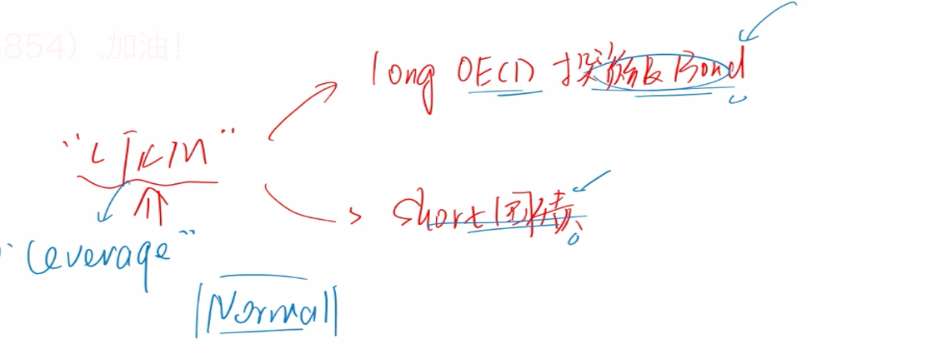 8854) 加油!
long OECD 投资级 Bond
"LTCM"
short 国债
"Leverage"
Normal